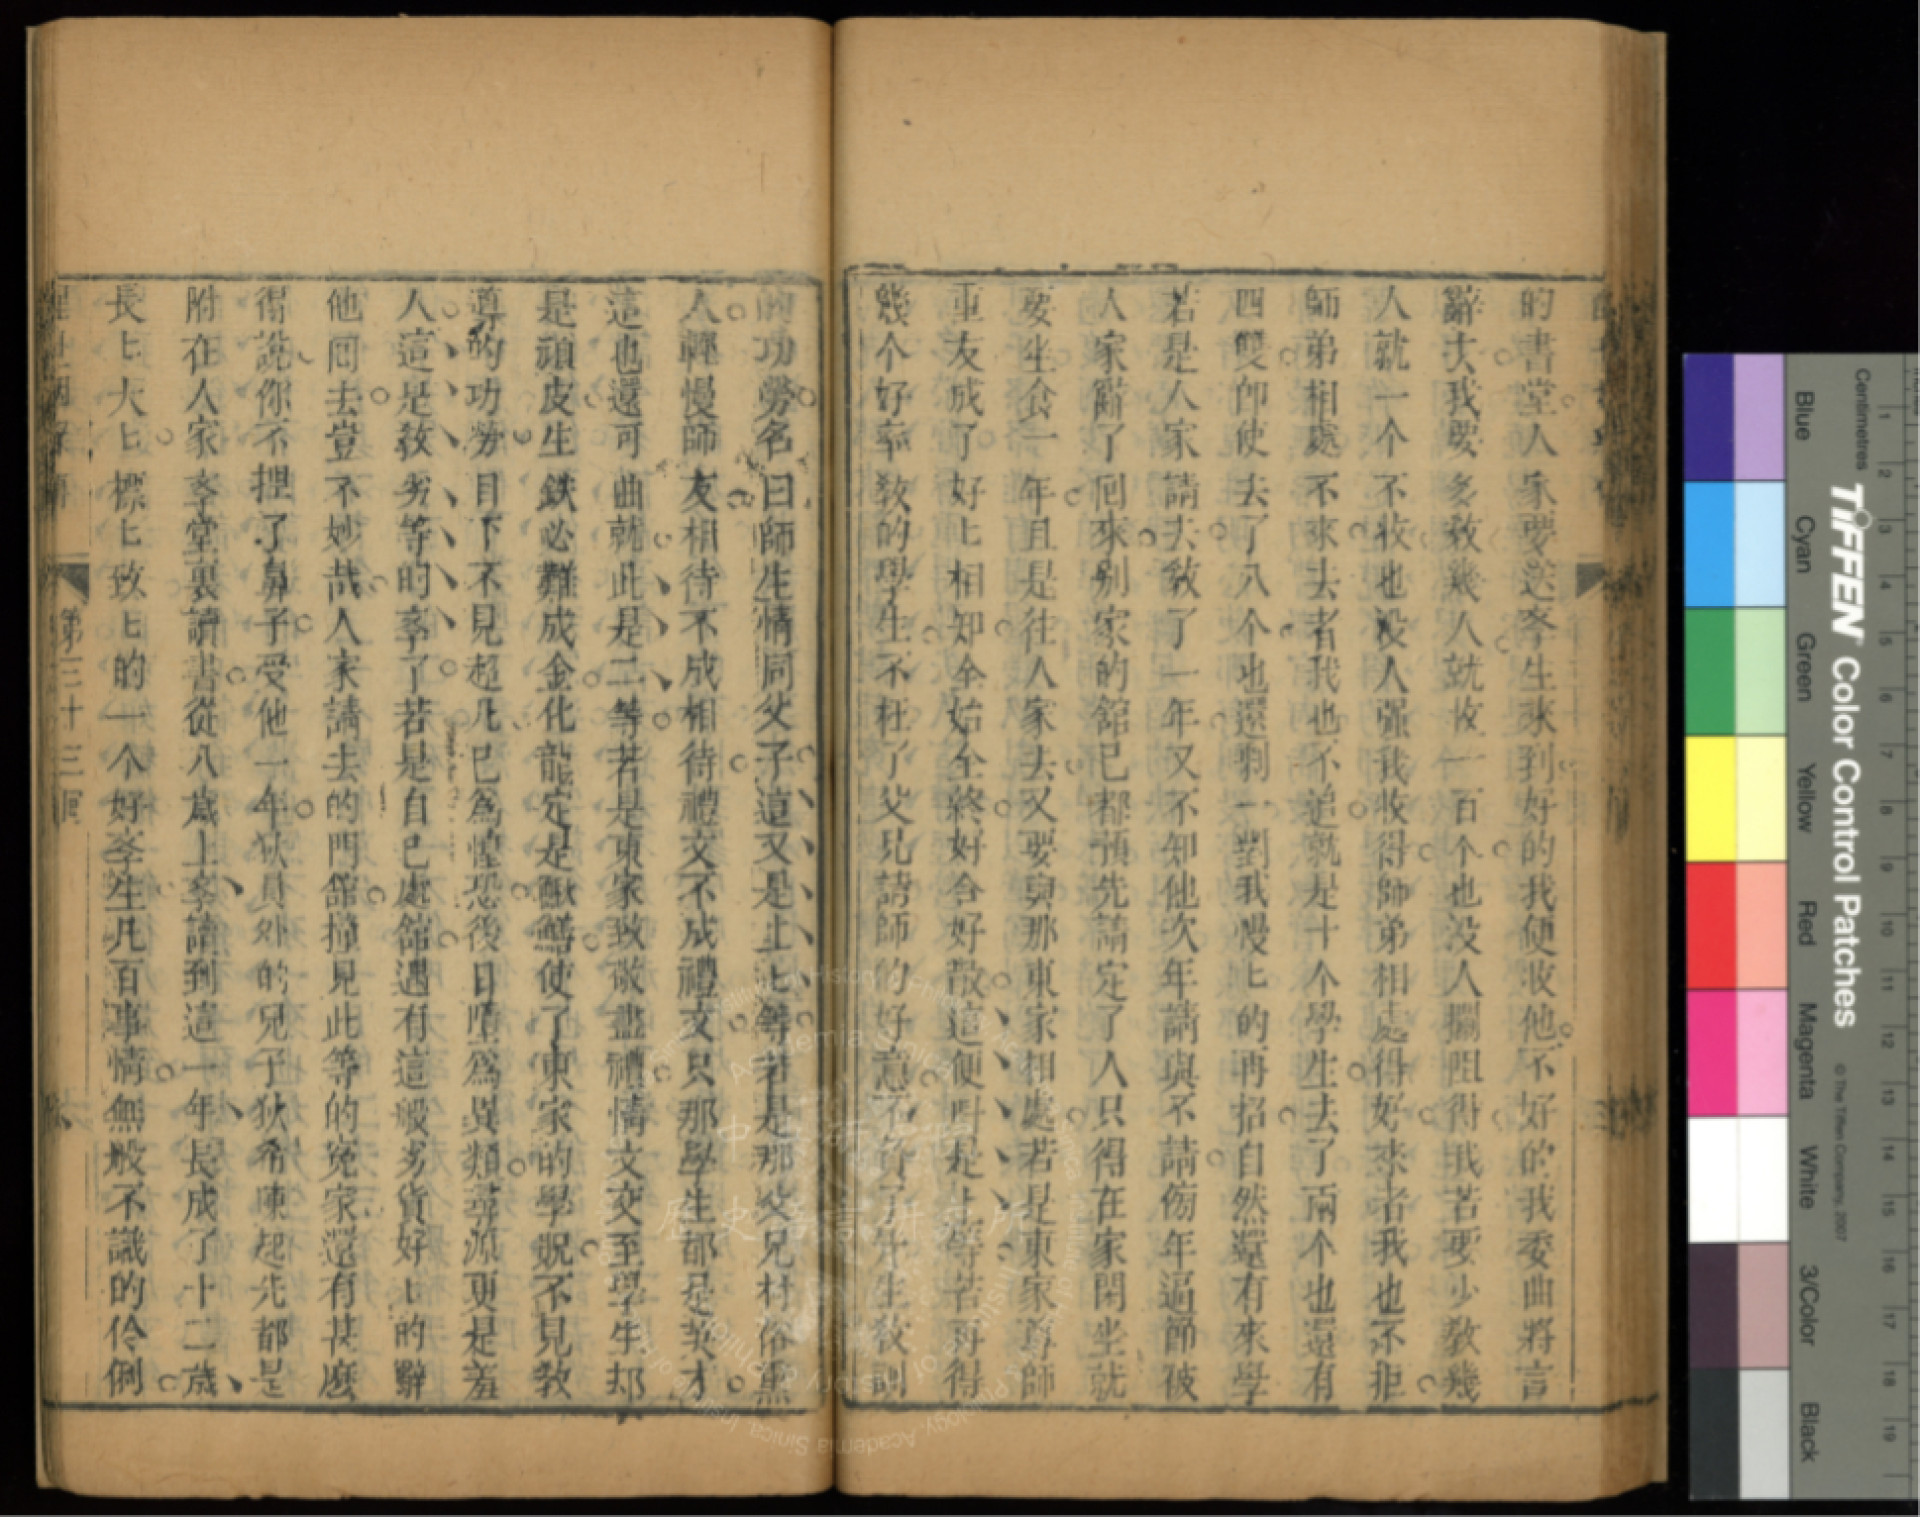 的書堂人家要送李生來到好的我便收他不好的我委曲將言
辭去我要多教幾人就收一百个也没人攔阻得我若要少教幾
人就一个不收也没人强我收得師弟相處得好來者我也不拒
師弟相處不來去者我也不追就是十个學生去了兩个也還有
四雙即使去了八个也還剩一對我慢匕的再招自然還有來學
若是人家請去教了一年又不知他次年請與不請傍年逼節被
人家辭了囘來別家的舘已都預先請定了人只得在家閒坐就
要坐食一年且是往人家去又要與那東家相處若是東家尊師
重友成了好上相知全始全終好合好散這便叫是上等若再得
幾个好率教的學生不枉了父兄請師的好意不負了先生教訓
的功勞名曰師生情同父子這又是上上等若是那父兄村俗熏
人輕慢師友相待不成相待禮文不成禮文只那學生都是英才
這也還可曲就此是二等若是東家致敬盡禮情文交至學生却
是頑皮生鉄必難成金化龍定是鰍鱔使了東家的學貺不見教
導的功勞目下不見超凡已爲惶恐後日墮爲異類尋源更是羞
人這是教劣等的李了若是自己處舘遇有這般劣貨好上的辭
他囘去豈不妙哉人家請去的門舘撞見此等的寃家還有甚麽
得說你不捏了鼻子受他一年狄員外的兒子狄希陳起先都是
附在人家李堂裏讀書從八歲上李讀到這一年長成了十二歲
長匕大匕標匕致匕的一个好李生凡百事情無般不識的伶俐
第三十三囘
TIFFEN Color Control Patches
© The Tiffen Company, 2007
Centimetres
1 2 3 4 5 6 7 8 9 10 11 12 13 14 15 16 17 18 19
Blue Cyan Green Yellow Red Magenta White 3/Color Black